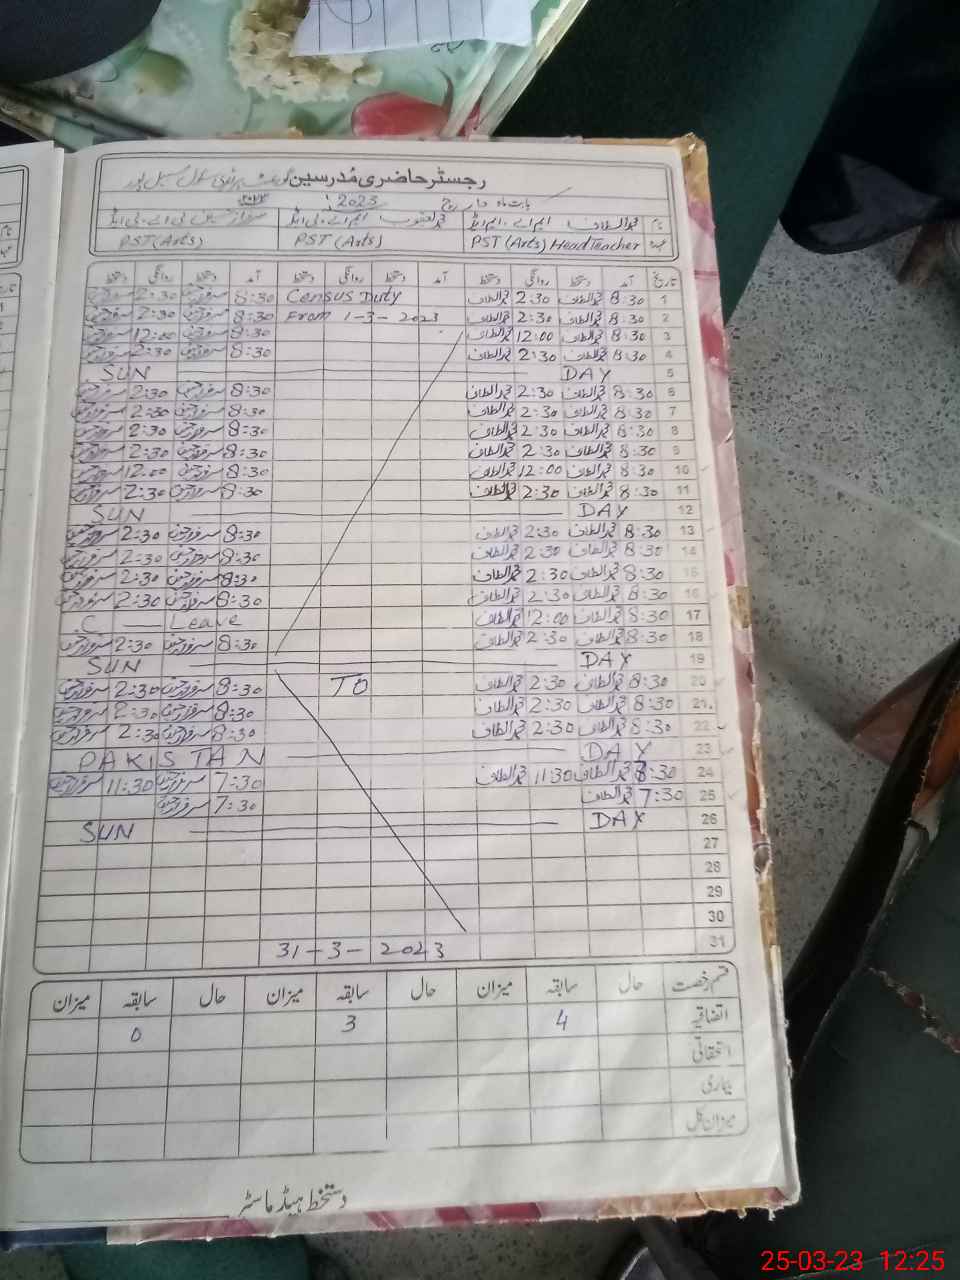 رجسٹر حاضری مدرسین
بابت ماہ مارچ 2023
نام محمد الطاف ایم اے۔ ایم ایڈ محمد یعقوب ایم اے۔ بی ایڈ سرفراز حسین بی اے۔ بی ایڈ
عہدہ PST (Arts) Head Teacher PST (Arts) PST (Arts)
تاریخ آمد دستخط روانگی دستخط آمد دستخط روانگی دستخط آمد دستخط روانگی دستخط
1 8:30 محمد الطاف 2:30 محمد الطاف Census Duty 8:30 سرفراز حسین 2:30 سرفراز حسین
2 8:30 محمد الطاف 2:30 محمد الطاف From 1-3-2023 8:30 سرفراز حسین 2:30 سرفراز حسین
3 8:30 محمد الطاف 12:00 محمد الطاف 8:30 سرفراز حسین 12:00 سرفراز حسین
4 8:30 محمد الطاف 2:30 محمد الطاف 8:30 سرفراز حسین 2:30 سرفراز حسین
SUN DAY 5
6 8:30 محمد الطاف 2:30 محمد الطاف 8:30 سرفراز حسین 2:30 سرفراز حسین
7 8:30 محمد الطاف 2:30 محمد الطاف 8:30 سرفراز حسین 2:30 سرفراز حسین
8 8:30 محمد الطاف 2:30 محمد الطاف 8:30 سرفراز حسین 2:30 سرفراز حسین
9 8:30 محمد الطاف 2:30 محمد الطاف 8:30 سرفراز حسین 2:30 سرفراز حسین
10 8:30 محمد الطاف 12:00 محمد الطاف 8:30 سرفراز حسین 12:00 سرفراز حسین
11 8:30 محمد الطاف 2:30 محمد الطاف 8:30 سرفراز حسین 2:30 سرفراز حسین
SUN DAY 12
13 8:30 محمد الطاف 2:30 محمد الطاف 8:30 سرفراز حسین 2:30 سرفراز حسین
14 8:30 محمد الطاف 2:30 محمد الطاف 8:30 سرفراز حسین 2:30 سرفراز حسین
15 8:30 محمد الطاف 2:30 محمد الطاف 8:30 سرفراز حسین 2:30 سرفراز حسین
16 8:30 محمد الطاف 2:30 محمد الطاف 8:30 سرفراز حسین 2:30 سرفراز حسین
17 8:30 محمد الطاف 12:00 محمد الطاف C — Leave
18 8:30 محمد الطاف 2:30 محمد الطاف 8:30 سرفراز حسین 2:30 سرفراز حسین
SUN DAY 19
20 8:30 محمد الطاف 2:30 محمد الطاف TO 8:30 سرفراز حسین 2:30 سرفراز حسین
21 8:30 محمد الطاف 2:30 محمد الطاف 8:30 سرفراز حسین 2:30 سرفراز حسین
22 8:30 محمد الطاف 2:30 محمد الطاف 8:30 سرفراز حسین 2:30 سرفراز حسین
PAKISTAN DAY 23
24 8:30 محمد الطاف 11:30 محمد الطاف 7:30 سرفراز حسین 11:30 سرفراز حسین
25 7:30 محمد الطاف 7:30 سرفراز حسین
SUN DAY 26
27
28
29
30
31 31-3-2023
قسم رخصت حال سابقہ میزان حال سابقہ میزان حال سابقہ میزان
اتفاقیہ 4 3 0
استحقاقی
بیماری
میزان کل
دستخط ہیڈ ماسٹر
25-03-23 12:25